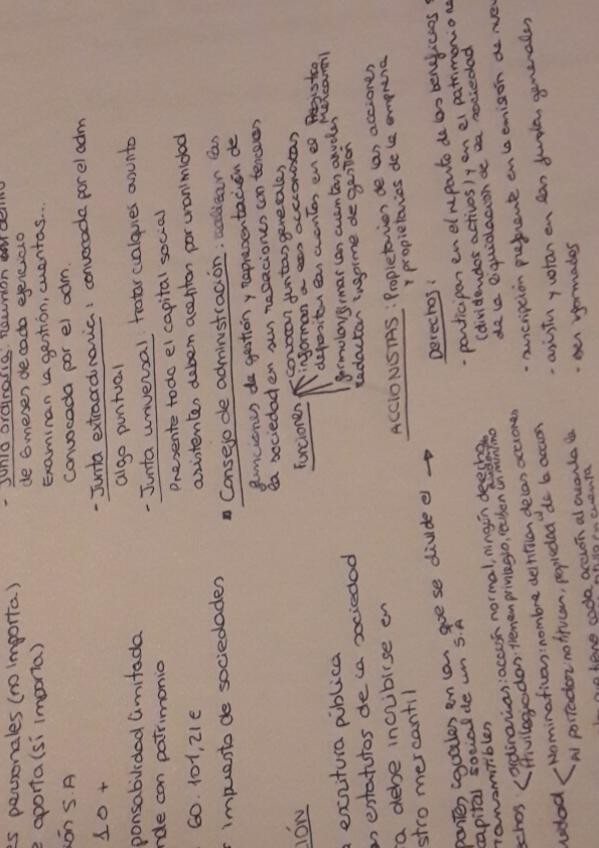 es personales (no importa)
e aporta (sí importa)
ión S.A
10 +
ponsabilidad limitada
nde con patrimonio
60.101,21€
r impuesto de sociedades
IÓN
escritura pública
os estatutos de la sociedad
a debe incribirse en
stro mercantil
partes iguales en las que se divide el →
capital social de un S.A
Transmitibles
chos < Ordinarias: acción normal, ningún derecho
Privilegiadas: tienen privilegio, reciben un mínimo
Nominativas: nombre del titular de las acciones
Al portador: no titular, propiedad de la acción
tiene cada acción al
- Junta ordinaria: Reunión dentro
de 6 meses de cada ejercicio
Examinan la gestión, cuentas...
Convocada por el adm.
- Junta extraordinaria: convocada por el adm
algo puntual
- Junta universal: tratar cualquier asunto
Presente todo el capital social
asistentes deben aceptar por unanimidad
Consejo de administración: realizan las
funciones de gestión y representación de
la sociedad en sus relaciones con terceros
Funciones
convocar juntas generales
informan a los accionistas
depositar las cuentas en el Registro Mercantil
formular/firmar las cuentas anuales
Redactar informe de gestión
ACCIONISTAS: Propietarios de las acciones
y propietarios de la empresa
Derechos:
- participar en el reparto de los beneficios
(dividendos activos) y en el patrimonio
de la liquidación de la sociedad
- suscripción preferente en la emisión de
- asistir y votar en las juntas generales
- ser informados